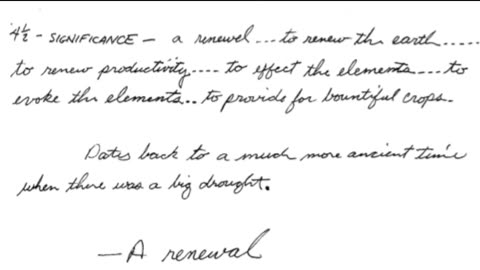 4½ - SIGNIFICANCE - a renewel....to renew the earth.....
to renew productivity.... to effect the elements....to
evoke the elements.. to provide for bountiful crops.
Dates back to a much more ancient time
when there was a big drought.
- A renewal